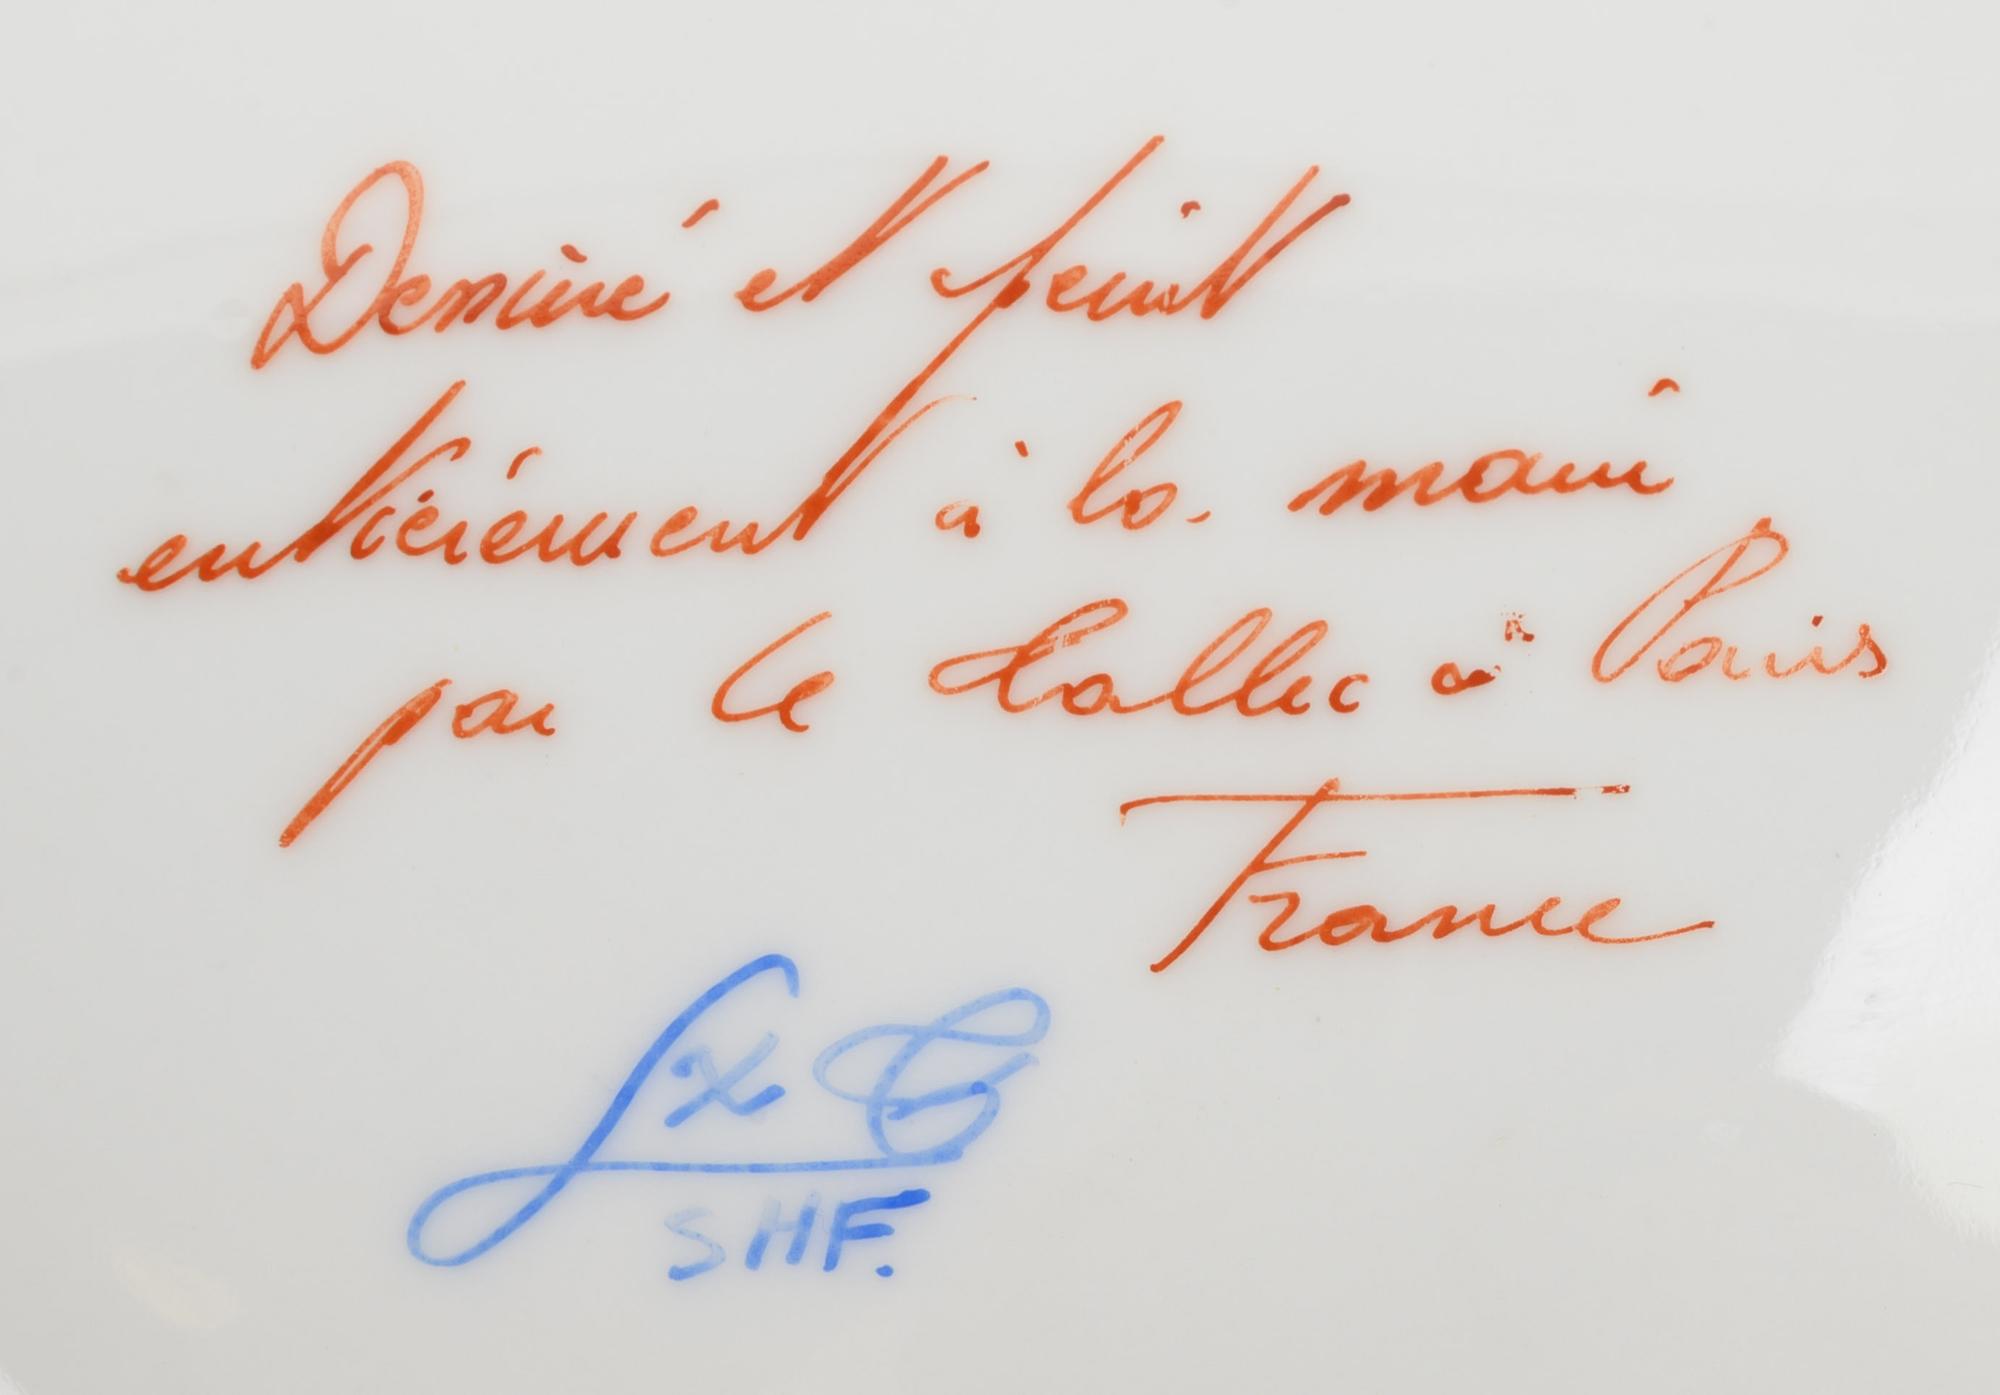 Dessiné et peint
entièrement à la main
par Le Tallec à Paris
France
L x C
SHF.